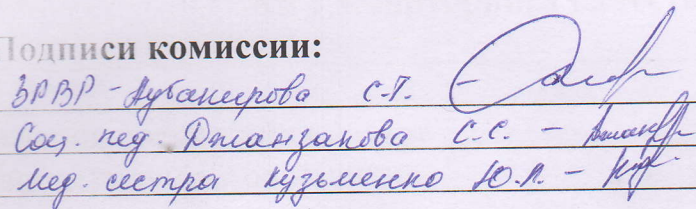 Подписи комиссии:
ЗРВР - Аубакирова С.Т. -
Соц. пед. Джанзакова С.С. -
Мед. сестра Кузьменко Ю.А. -